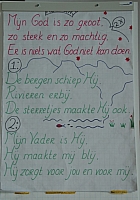 Mijn God is zo groot,
zo sterk en zo machtig.
Er is niets wat God niet kan doen.
2x
1.
De bergen schiep Hij,
Rivieren erbij.
De sterretjes maakte Hij ook.
2.
Mijn Vader is Hij,
Hij maakte mij blij,
Hij zorgt voor jou en voor mij.